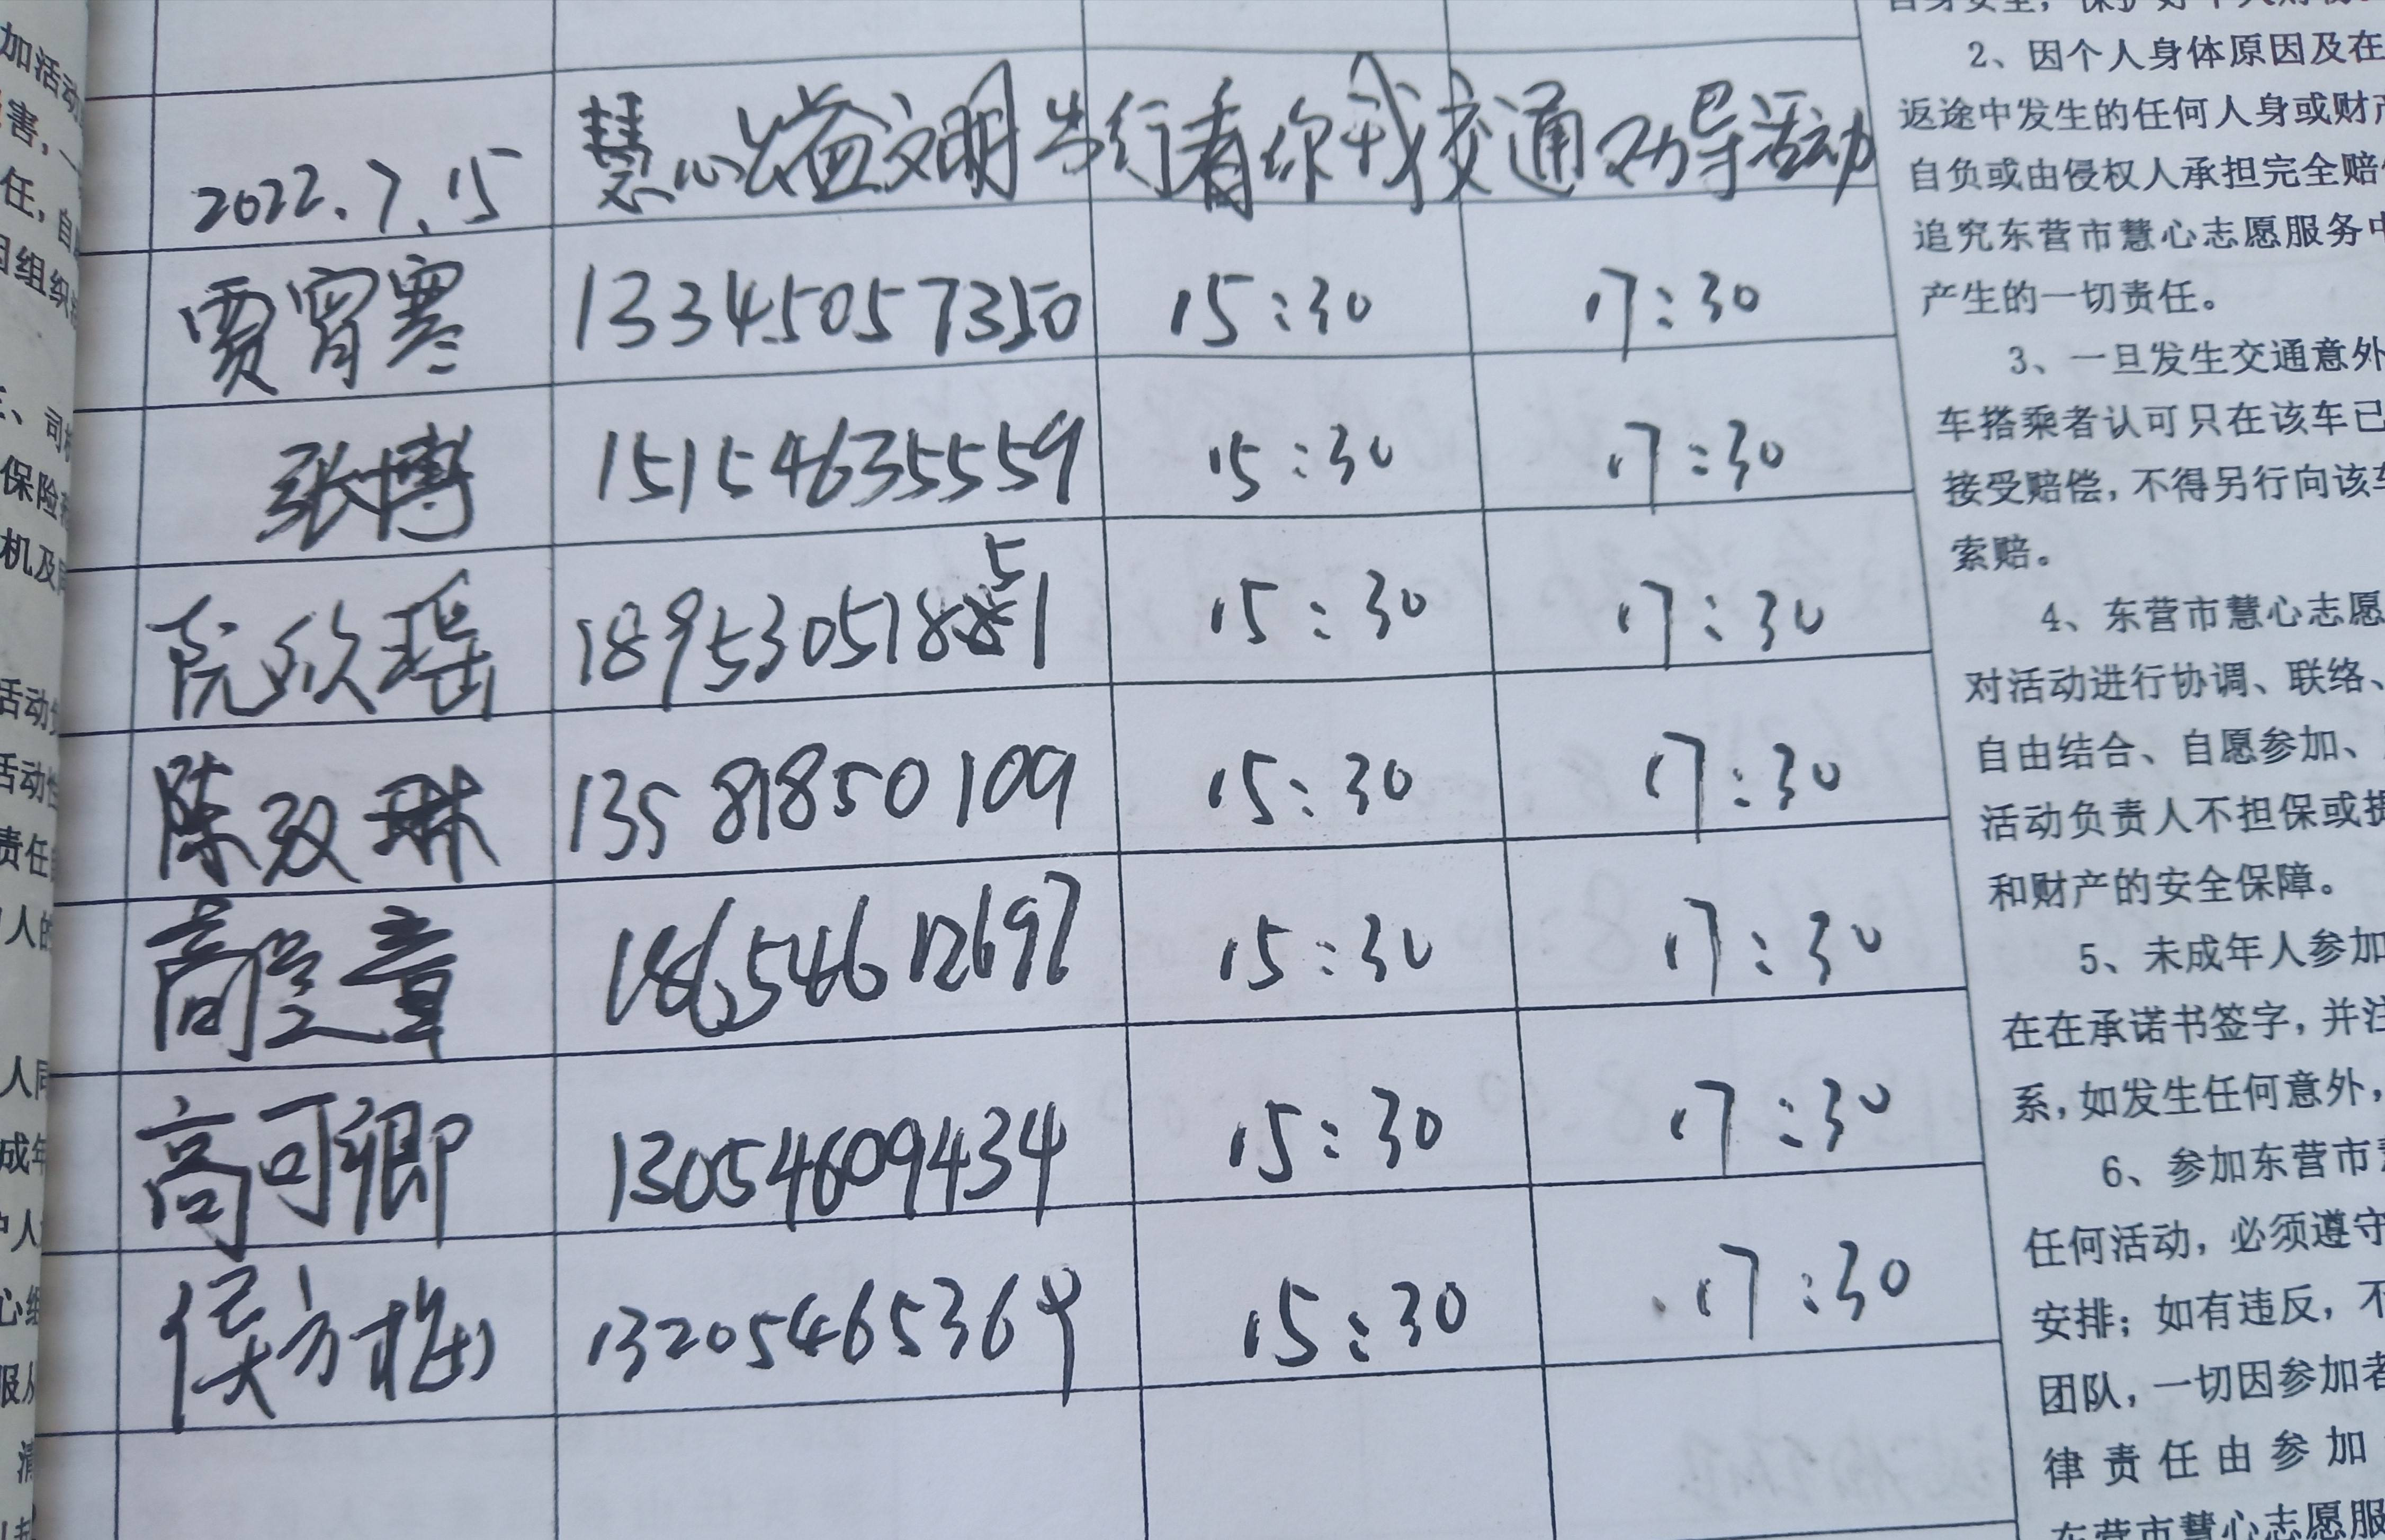 2022.7.15 慧心公益文明出行有你我交通劝导活动
贾宵寒 13345057350 15:30 17:30
张博 15154635559 15:30 17:30
阮欣瑶 18953051851 15:30 17:30
陈双琳 13581850109 15:30 17:30
高笠章 18654612697 15:30 17:30
高可卿 13054609434 15:30 17:30
侯方梅 13205465364 15:30 17:30
2、因个人身体原因及在
返途中发生的任何人身或财产
自负或由侵权人承担完全赔偿
追究东营市慧心志愿服务中
产生的一切责任。
3、一旦发生交通意外
车搭乘者认可只在该车已
接受赔偿，不得另行向该车
索赔。
4、东营市慧心志愿
对活动进行协调、联络、
自由结合、自愿参加、
活动负责人不担保或
和财产的安全保障。
5、未成年人参加
在在承诺书签字，并注
系，如发生任何意外，
6、参加东营市
任何活动，必须遵守
安排；如有违反，不
团队，一切因参加者
律责任由参加
东营市慧心志愿服
加活动
害，一
任，自
组织
三、司
保险
机及同
活动
活动性
责任
人的
人同
成年
户人
心组
服从
清